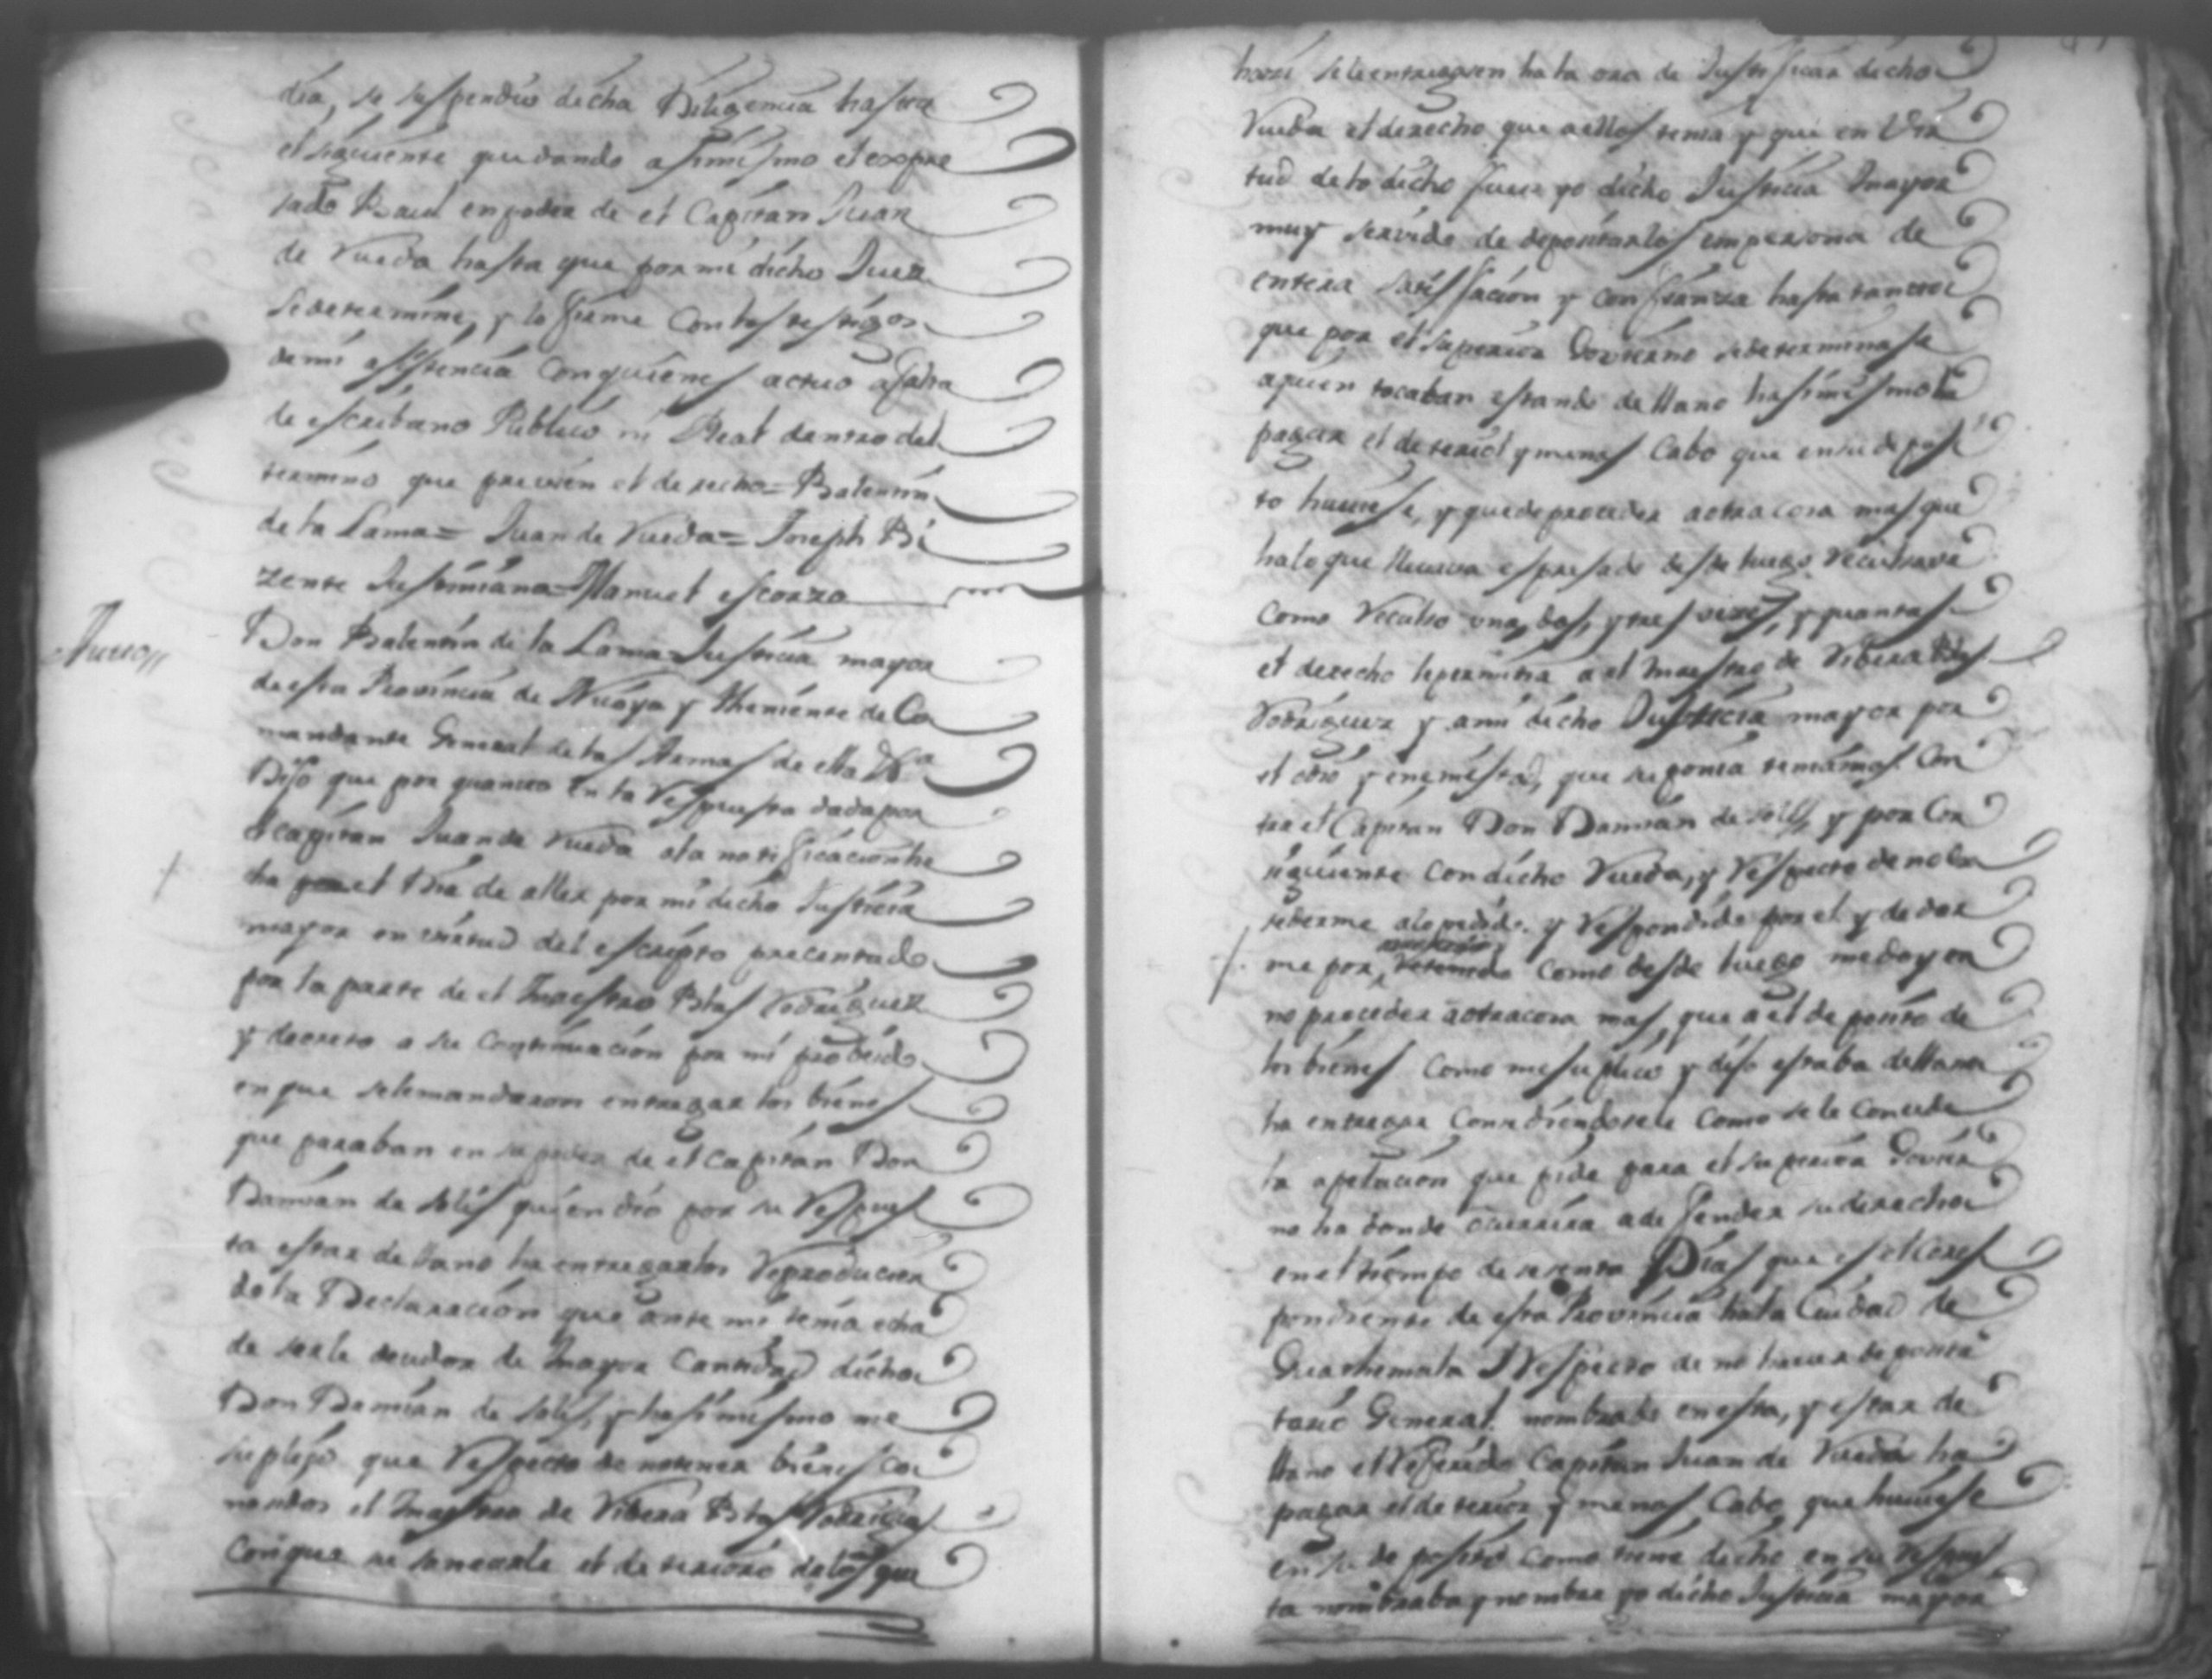 dia, se suspendio dicha Diligencia hasta
el siguiente quedando assimismo el expre
sado Baul en poder de el Capitan Juan
de Rueda hasta que por mi dicho Juez
se determine, y lo firme con los testigos
de mi assistencia con quienes actuo a falta
de escribano Publico ni Real dentro del
termino que previen el derecho = Balentin
de la Lama = Juan de Rueda = Joseph Bi
zente Justiniana = Manuel escorza
Autto
Don Balentin de la Lama Justicia mayor
de esta Provincia de Nicoya y theniente de Co
mandante General de las Armas de ella &a
Dijo que por quanto en la Respuesta dada por
el capitan Juan de Rueda a la notificacion he
cha por el Dia de aller por mi dicho Justicia
mayor en virtud del escripto precentado
por la parte de el Maestro Blas Rodriguez
y decreto a su continuacion por mi probeido
en que se le mandaron entregar los bienes
que paraban en su poder de el capitan Don
Damian de Solis quien dio por su Respues
ta estar de llano ha entregarlos Reproducien
do la Declaracion que ante mi tenia echa
de serle deudor de mayor Cantidad dicho
Don Damian de Solis, y hasimismo me
suplico que Respecto de no tener bienes co
nosidos el Maestro de Ribera Blas Rodriguez
con que se sanearle el deterioro de los que
hazer se le entregasen ha la ora de Justificar dicho
Rueda el derecho que a ellos tenia y que en Vir
tud de lo dicho fuese yo dicho Justicia mayor
muy servido de depositarlos em persona de
entera satisfacion y confianza hasta tanto
que por el superior Govierno se determinase
a quien tocaban estando de llano hasimismo ha
pagar el deterior y menos Cabo que en su deposi
to huviese, y que de proceder a otra cosa mas que
ha lo que llevava espresado desde luego recusava
como Recuso una, dos, y tres vezes, y quantas
el derecho le permitia a el maestro de Ribera Blas
Rodriguez y a mi dicho Justicia mayor por
el odio y enemistad, que suponia teniamos con
tra el Capitan Don Damian de Solis, y por Con
siguiente con dicho Rueda, y Respecto de no
a lo pedido y Respondido por el y de dar
me por como desde luego me doy en
no proceder a otra cosa mas que a el deposito de
los bienes como me suplico y dijo estaba de llano
ha entregar concediendosele como se le concede
la apelacion que pide para el superior Govier
no ha donde ocurrira a defender su derecho
en el tiempo de sesenta Dias que es el corres
pondiente de esta Provincia ha la Ciudad de
Guathemala Y Respecto de no haver deposi
tario General nombrado en esta, y estar de
llano el Referido Capitan Juan de Rueda ha
pagar el deterior y menos Cabo que huviese
en su deposito como tiene dicho en su respues
ta nombraba y nombre yo dicho Justicia mayor